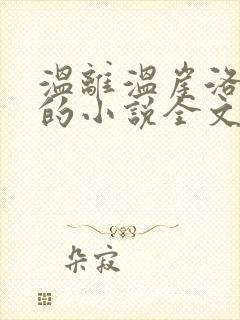 温離温崖洛
的小説全文
朵寂